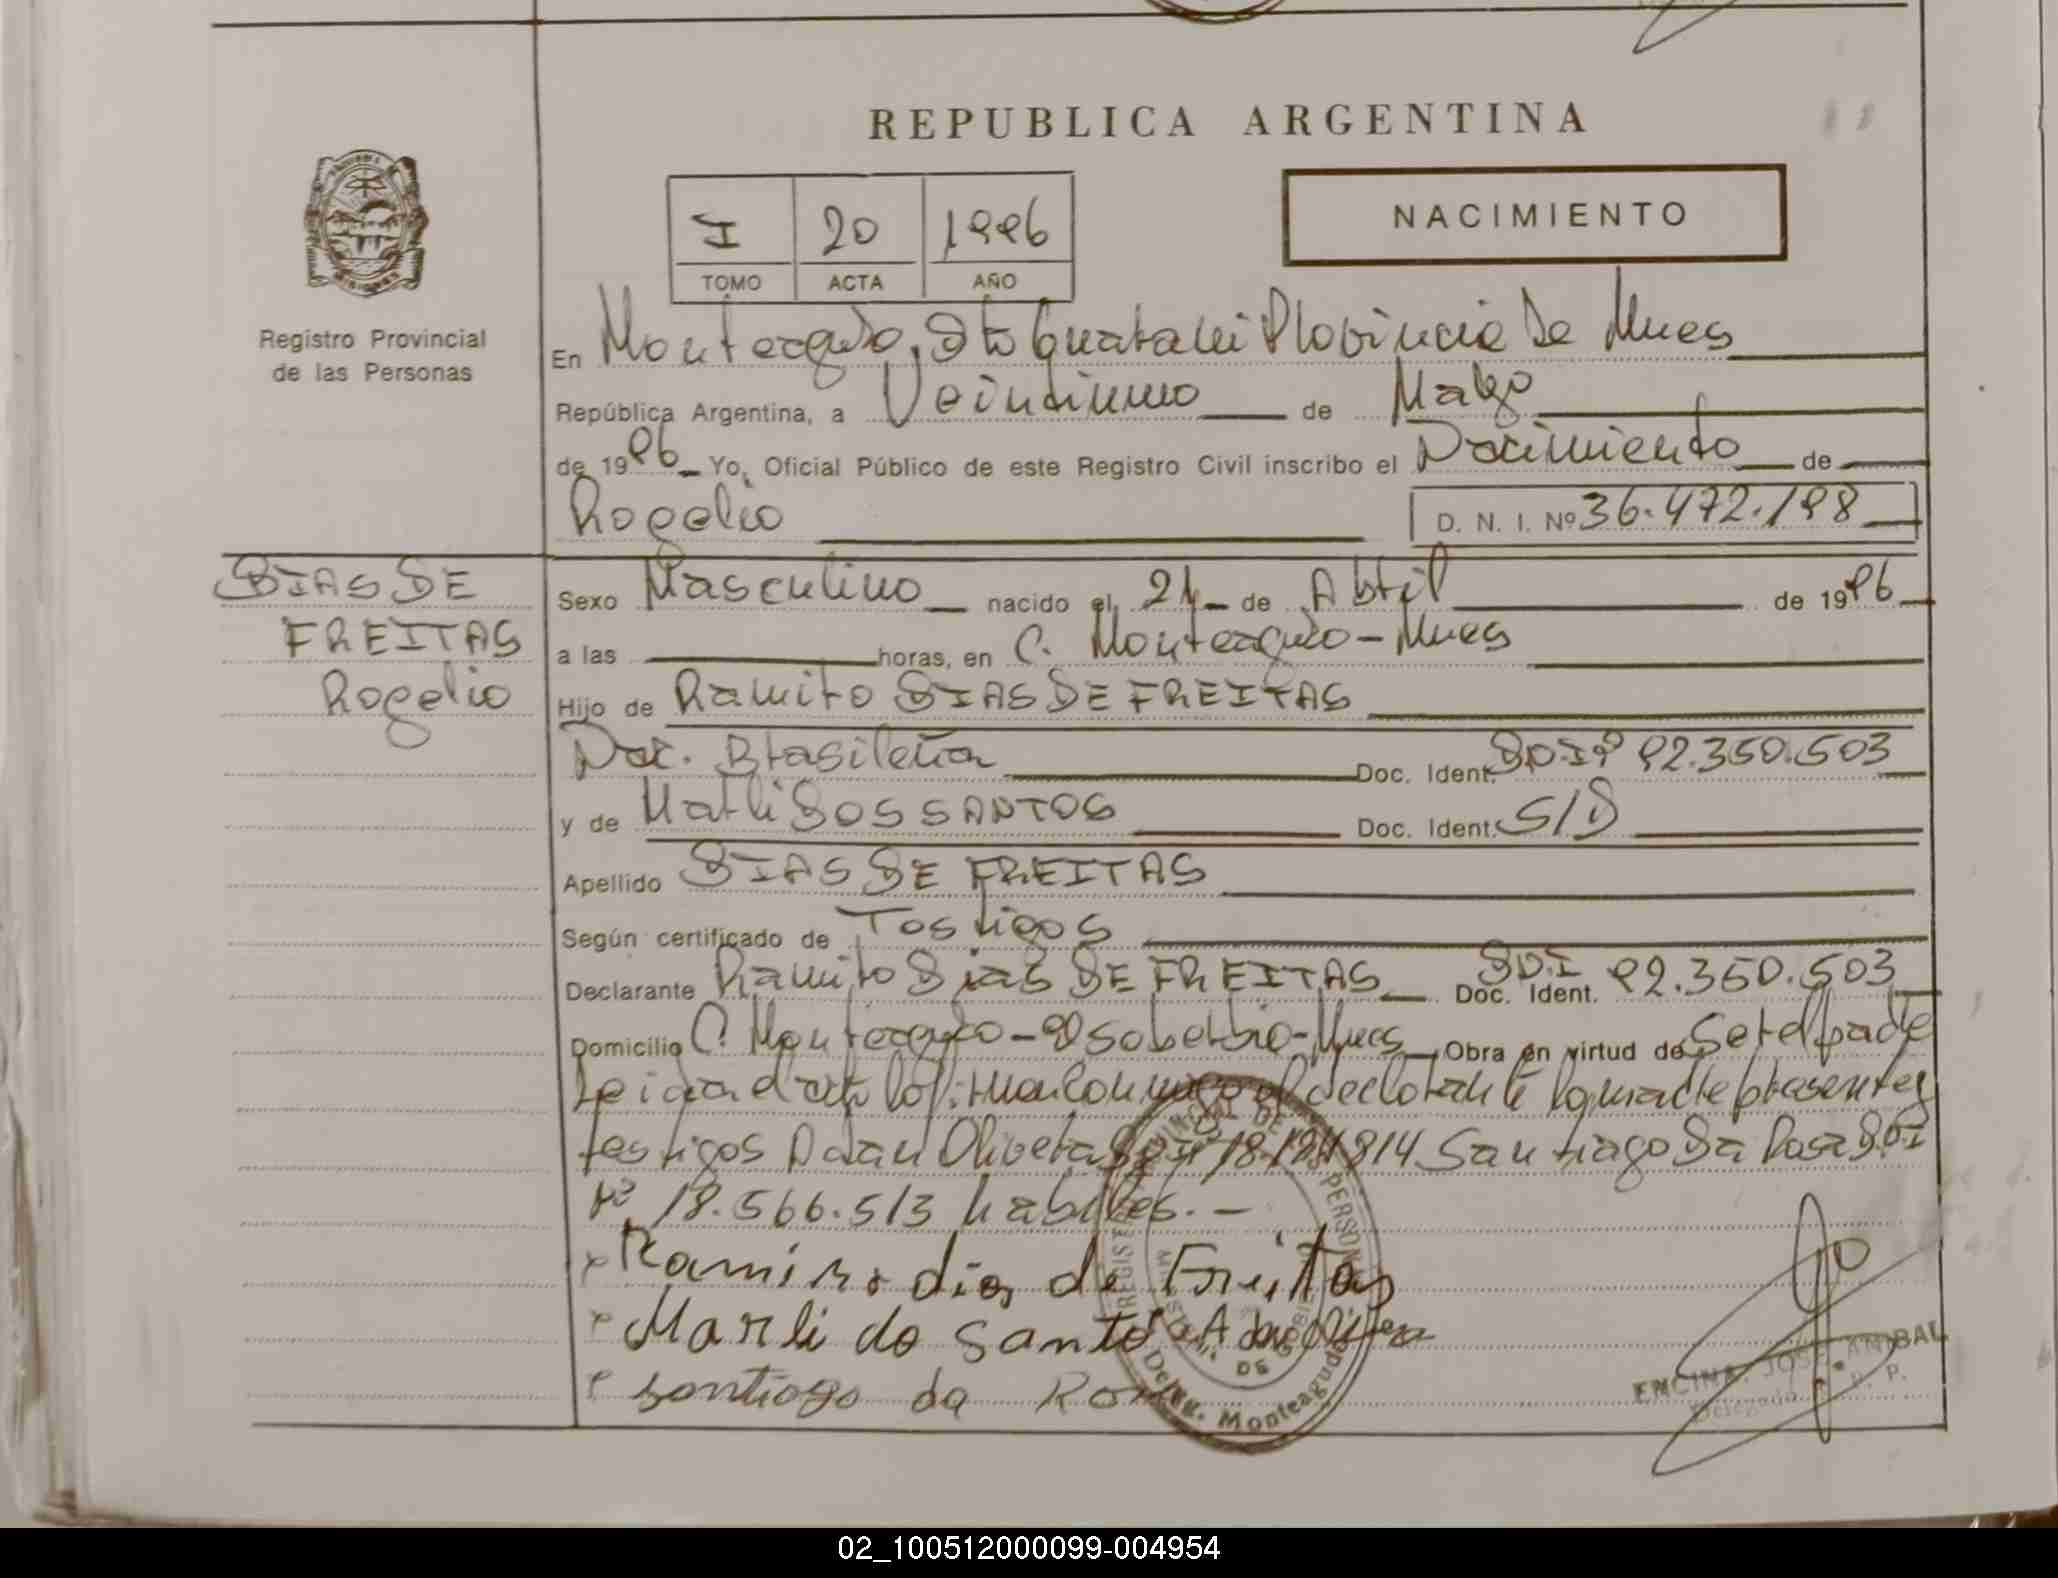 REPUBLICA ARGENTINA
NACIMIENTO
I 20 1996
TOMO ACTA AÑO
Registro Provincial
de las Personas
En Monteagudo, Dto Guaraní Provincia De Mnes
República Argentina, a Veintiuno de Mayo
de 1996 Yo, Oficial Público de este Registro Civil inscribo el Nacimiento de
Rogelio D. N. I. Nº 36.472.198
DIAS DE
FREITAS
Rogelio
Sexo Masculino nacido el 21 de Abril de 1996
a las horas, en C. Monteagudo - Mnes
Hijo de Ramiro DIAS DE FREITAS
Nac. Brasileña Doc. Ident. D.N.Iº 92.350.503
y de Marli DOS SANTOS Doc. Ident. S/D
Apellido DIAS DE FREITAS
Según certificado de Testigos
Declarante Ramiro Dias DE FREITAS Doc. Ident. D.N.I 92.350.503
Domicilio C. Monteagudo - El Soberbio - Mnes Obra en virtud de Ser el padre
firman conmigo el declarante la madre presente y
testigos Adan Olivera D.N.I 18.194.814 Santiago Da Rosa D.N.I
Nº 18.566.513 habiles. -
Ramiro dias de Freitas
Marli do Santo Adan Olivera
Santiago da Rosa
REGISTRO PROVINCIAL DE PERSONAS
DE GOBIERNO
Deleg. Monteagudo
ENCINA JOSE ANIBAL
Delegado R. P. P.
02_100512000099-004954